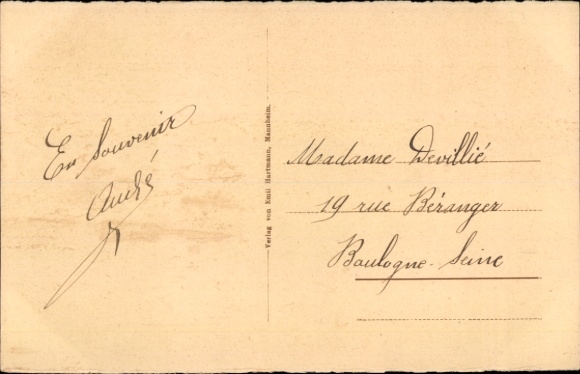 En Souvenir
André
Verlag von Emil Hartmann, Mannheim.
Madame Devillié
19 rue Béranger
Boulogne-Seine